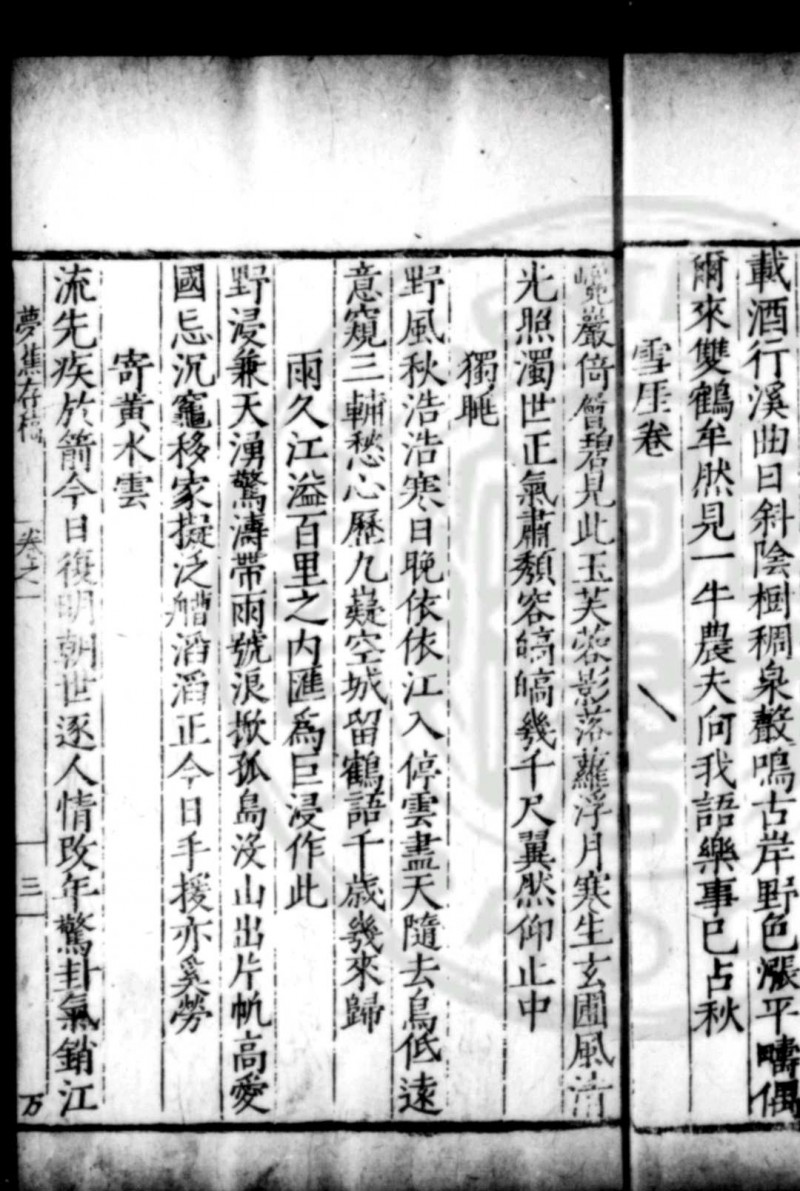 載酒行溪曲日斜陰樹稠泉聲鳴古岸野色漲平疇偶
爾來雙鶴牟然見一牛農夫向我語樂事已占秋
雪厓卷
巉巖倚層碧見此玉芙蓉影落蘿浮月寒生玄圃風清
光照濁世正氣肅頹容皜皜幾千尺翼然仰止中
獨眺
野風秋浩浩寒日晚依依江入停雲盡天隨去鳥低遠
意窺三輔愁心歷九嶷空城留鶴語千歲幾來歸
雨久江溢百里之內匯為巨浸作此
野浸兼天湧驚濤帶雨號浪掀孤島沒山出片帆高愛
國忌沉竈移家擬泛艚滔滔正今日手援亦奚勞
寄黃水雲
流先疾於箭今日復明朝世逐人情改年驚卦氣銷江
夢蕉存稿 卷之一 三